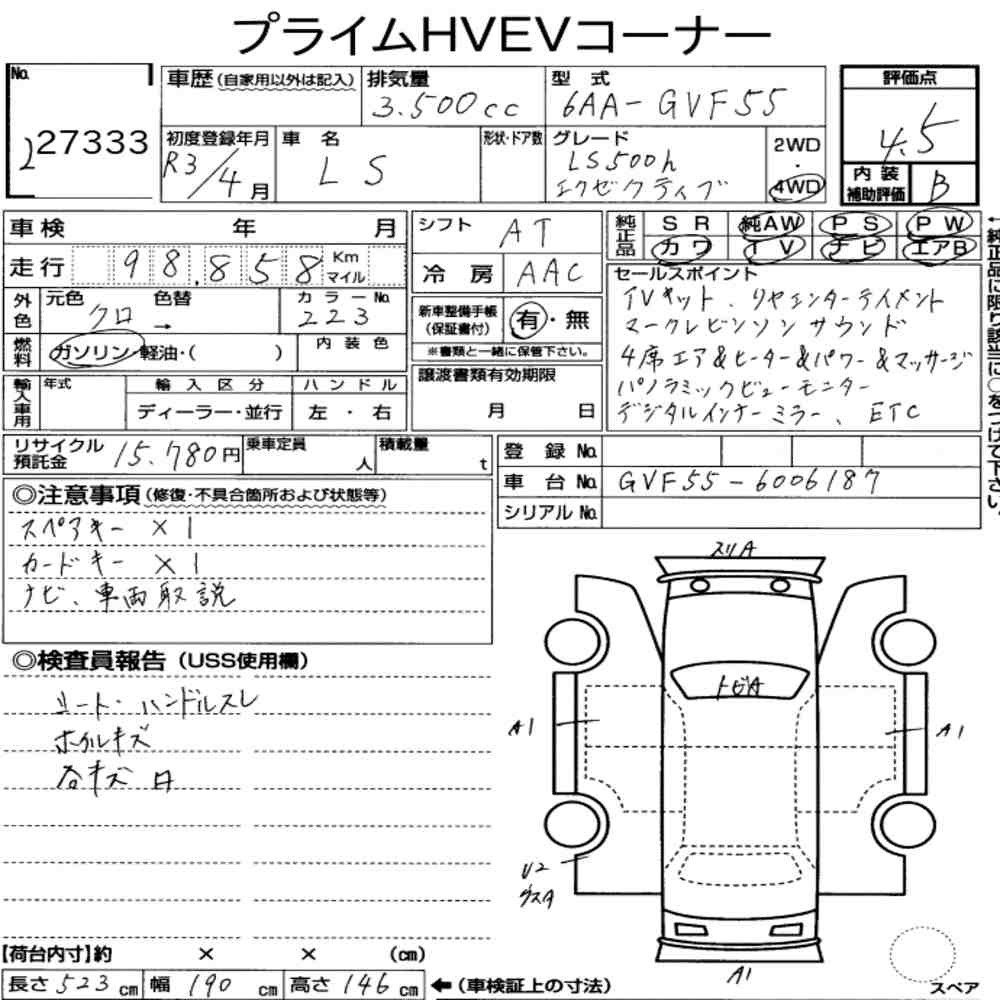 プライムHVEVコーナー
No.
227333
車歴(自家用以外は記入)
排気量
3.500cc
型式
6AA-GVF55
評価点
4.5
初度登録年月
R3/4月
車名
LS
形状・ドア数
グレード
LS500h
エクゼクティブ
2WD
・
4WD
内装
補助評価
B
車検 年 月
走行 98,858 Km
マイル
シフト AT
冷房 AAC
純正品
SR 純AW PS PW
カワ TV ナビ エアB
←純正品に限り該当に○をつけて下さい。
外色
元色 色替
クロ →
カラーNo.
223
燃料
ガソリン・軽油・( )
内装色
新車整備手帳
(保証書付)
有・無
※書類と一緒に保管下さい。
セールスポイント
TVキット、リヤエンターテイメント
マークレビンソンサウンド
4席エア&ヒーター&パワー&マッサージ
パノラミックビューモニター
デジタルインナーミラー、ETC
輸入車用
年式
輸入区分
ディーラー・並行
ハンドル
左・右
譲渡書類有効期限
月 日
リサイクル
預託金
15.780円
乗車定員
人
積載量
t
登録No.
車台No. GVF55-6006187
シリアルNo.
◎注意事項(修復・不具合箇所および状態等)
スペアキー×1
カードキー×1
ナビ、車両取説
◎検査員報告(USS使用欄)
シート・ハンドルスレ
ホイルキズ
各キズ
スリA
トビA
A1
A1
U2
A1
スペア
【荷台内寸】約 × × (cm)
長さ523cm 幅190cm 高さ146cm ←(車検証上の寸法)